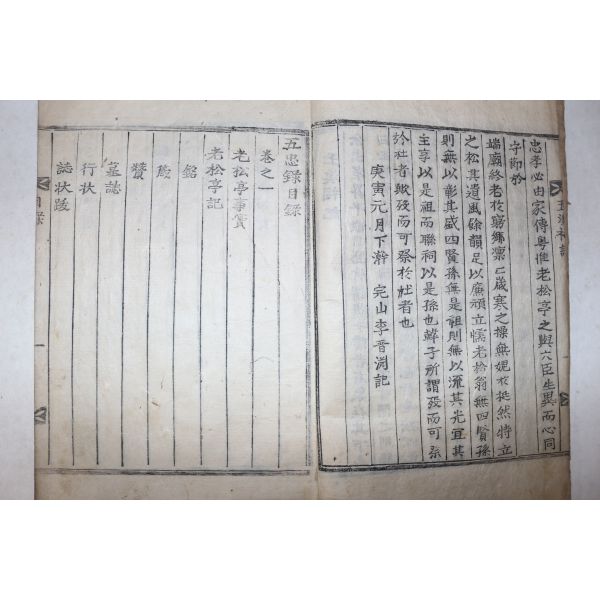 忠孝必由家傳粤惟老松亭之與六臣生異而心同
守節於
端廟終老於窮鄕凛〻歲寒之操無媿於挺然特立
之松其遺風餘韻足以廉頑立懦老松翁無四賢孫
則無以彰其盛四賢孫無是祖則無以流其光宜其
主享以是祖而聯祠以是孫也韓子所謂歿而可祭
於社者歟歿而可祭於社者也
庚寅元月下澣 完山李晉淵記
五忠錄目錄
卷之一
老松亭事實
老松亭記
銘
贊
墓誌
行狀
誌狀跋